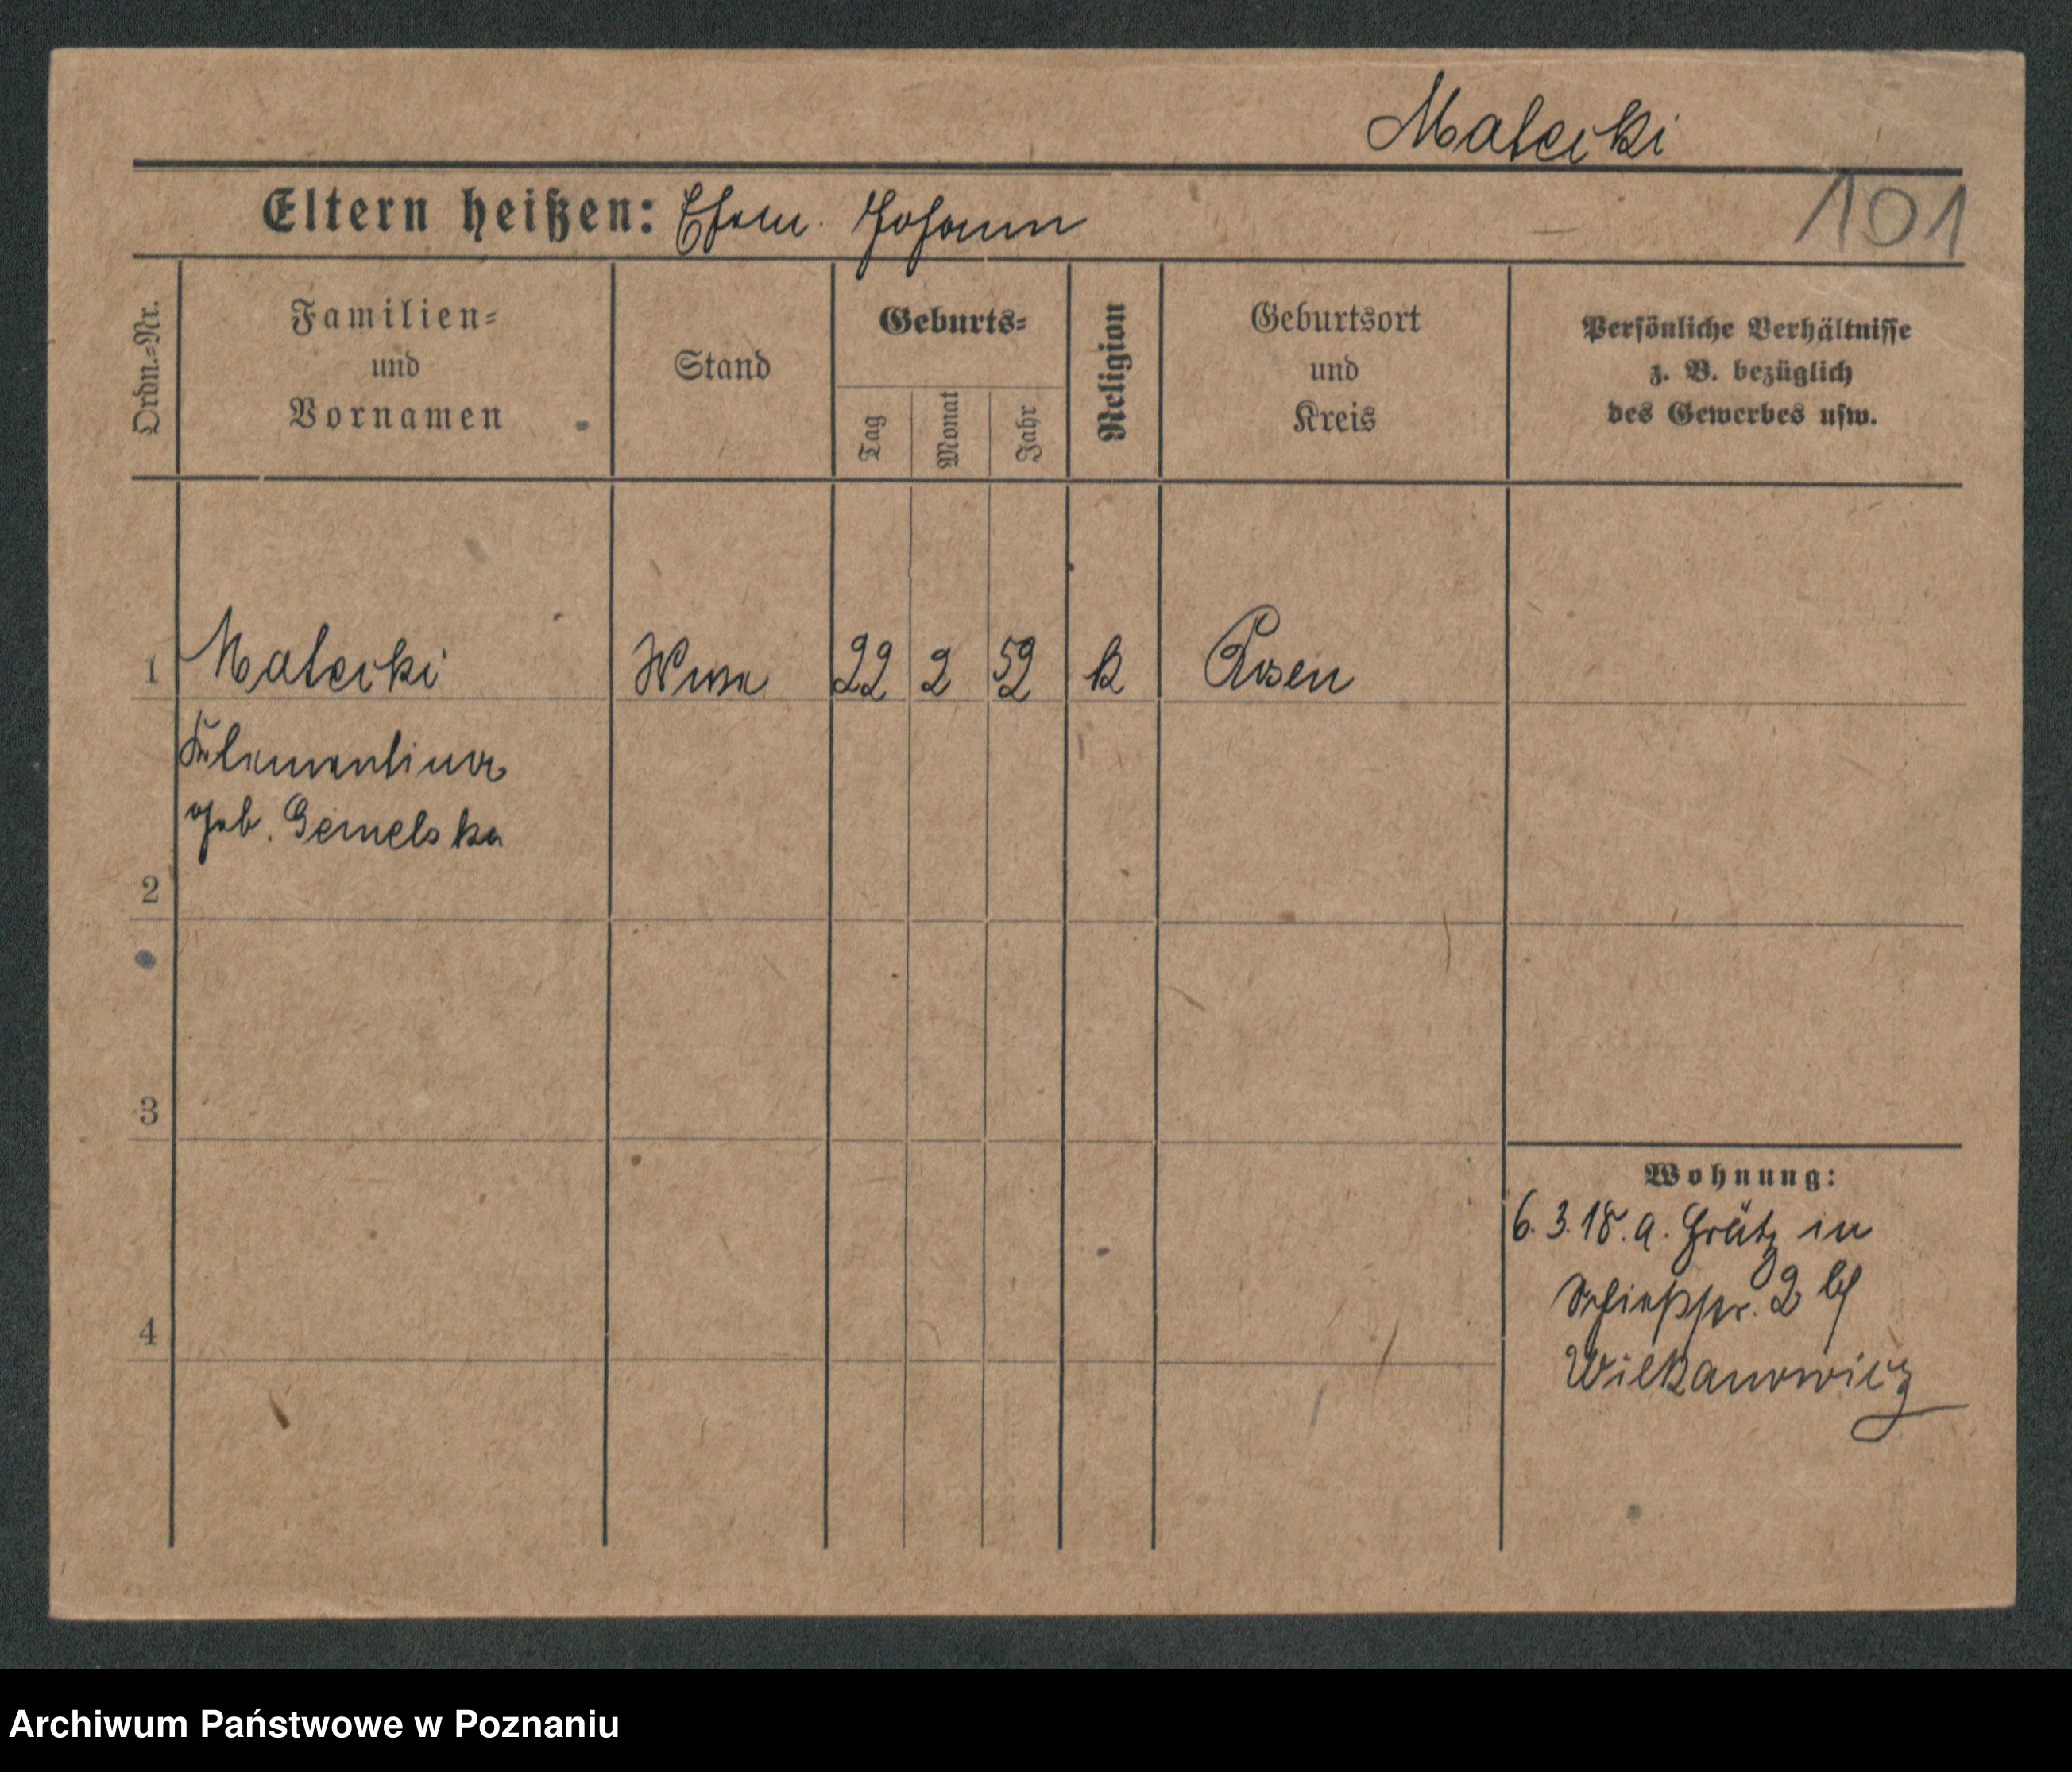 Malecki
Eltern heißen: Ehem. Johann
101
Ordn.=Nr.
Familien=
und
Vornamen
Stand
Geburts=
Tag
Monat
Jahr
Religion
Geburtsort
und
Kreis
Persönliche Verhältnisse
z. B. bezüglich
des Gewerbes usw.
1 Malecki Wwe 22 2 52 k Posen
Klementina
geb. Gemelska
2
3
4
Wohnung:
6. 3. 18. a. Grätz in
Schießstr. 2 bei
Wilkanowicz
Archiwum Państwowe w Poznaniu